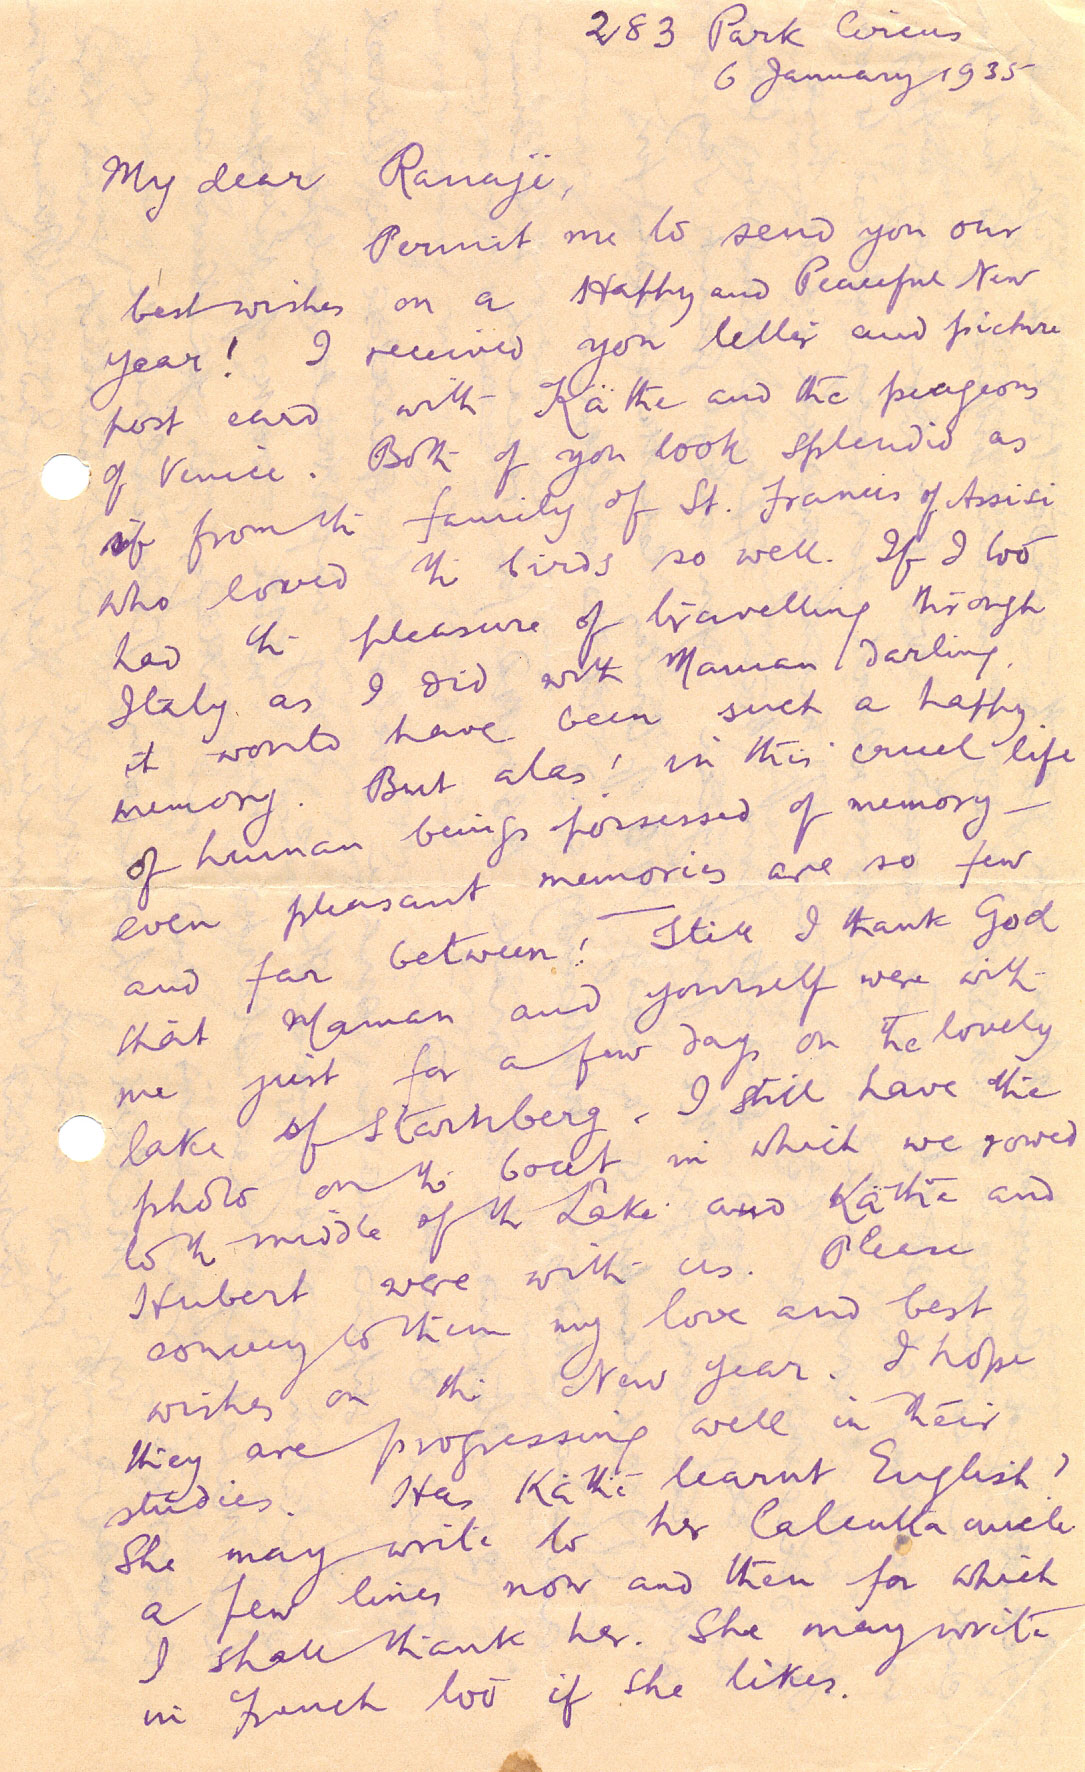 283 Park Circus
6 January 1935
My dear Ranaji,
Permit me to send you our
best wishes on a Happy and Peaceful New
year! I received you letter and picture
post card with Käthe and the peageons
of Venice. Both of you look splendid as
if from the family of St. Francis of Assisi
who loved the birds so well. If I too
had the pleasure of travelling through
Italy as I did with Maman darling.
it would have been such a happy
memory. But alas! in this cruel life
of human beings possessed of memory —
even pleasant memories are so few
and far between! Still I thank God
that Maman and yourself were with
me just for a few days on the lovely
lake of Starnberg. I still have the
photo on the boat in which we rowed
to the middle of the Lake and Käthe and
Hubert were with us. Please
convey to them my love and best
wishes on the New year. I hope
they are progressing well in their
studies. Has Käthe learnt English?
She may write to her Calcutta uncle
a few lines now and then for which
I shall thank her. She may write
in French too if she likes.